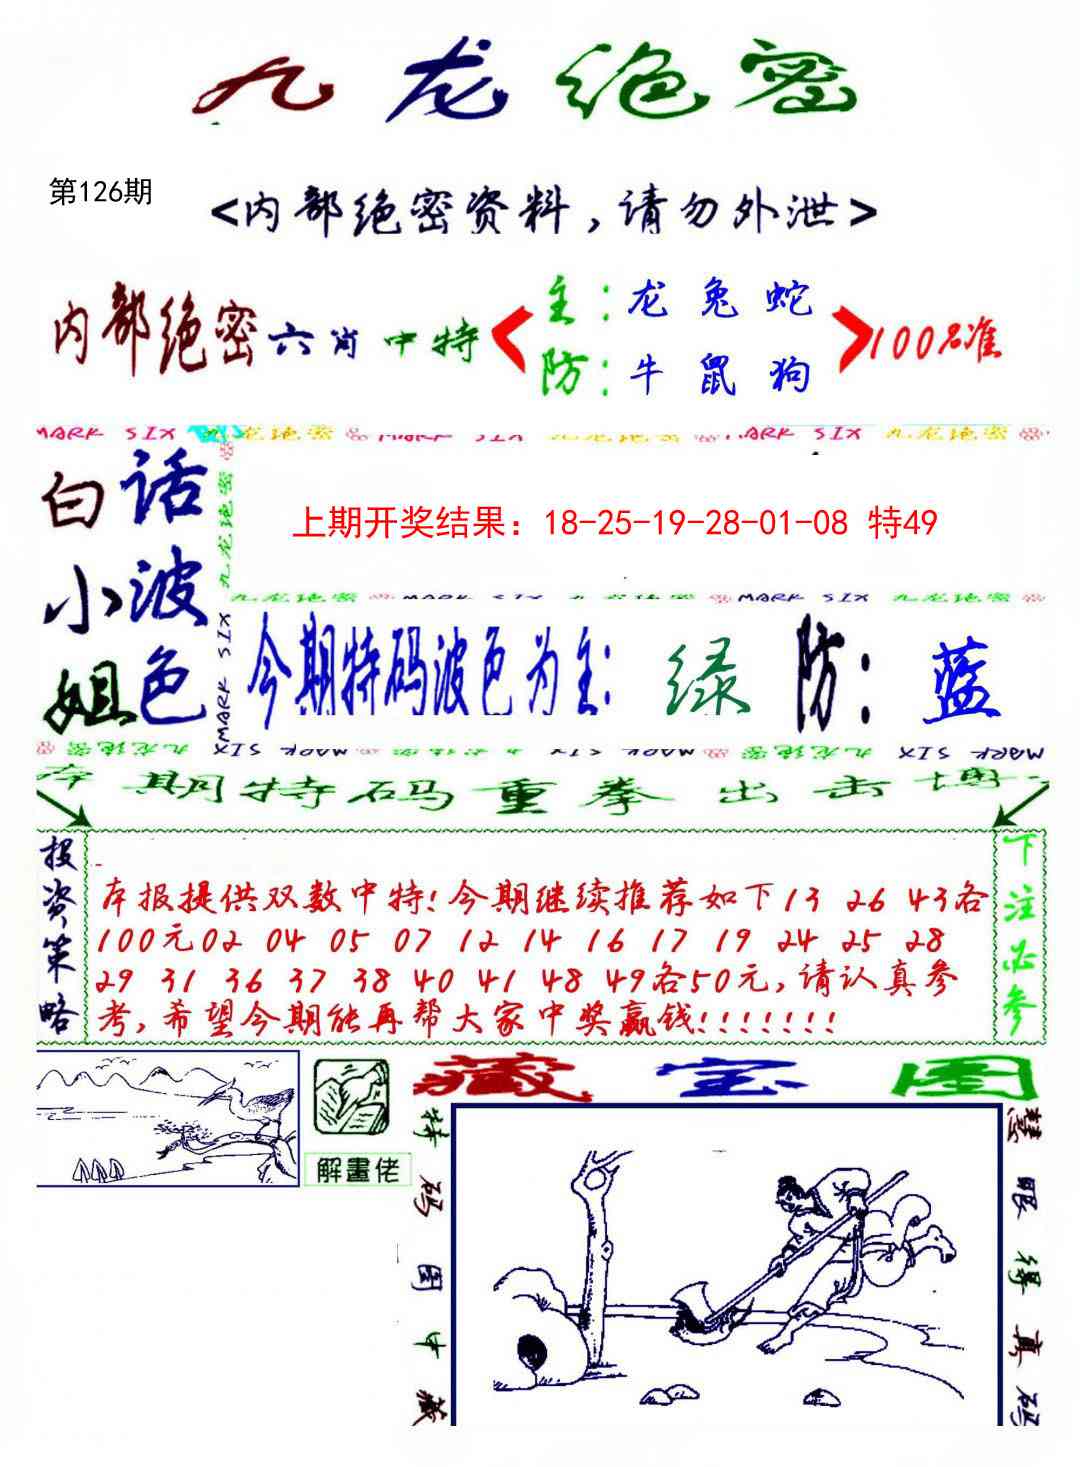 九龙绝密
第126期
<内部绝密资料,请勿外泄>
内部绝密六肖中特
主:龙兔蛇
防:牛鼠狗
100%准
MARK SIX 九龙绝密 MARK SIX 九龙绝密 MARK SIX 九龙绝密
白小姐
话波色
九龙绝密
MARK SIX
上期开奖结果：18-25-19-28-01-08 特49
九龙绝密 MARK SIX 九龙绝密 MARK SIX 九龙绝密
今期特码波色为主:绿 防:蓝
九龙绝密 MARK SIX 九龙绝密 MARK SIX 九龙绝密 MARK SIX
本期特码重拳出击博
投资策略
本报提供双数中特!今期继续推荐如下13 26 43各
100元02 04 05 07 12 14 16 17 19 24 25 28
29 31 36 37 38 40 41 48 49各50元,请认真参
考,希望今期能再帮大家中奖赢钱!!!!!!!
下注必参
解畫佬
藏宝图
特码图中藏
慧眼得真码